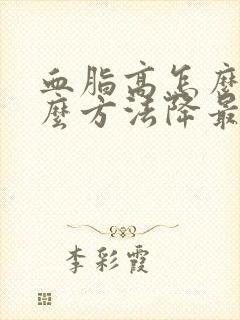 血脂高怎麼
麼方法降最
李彩霞